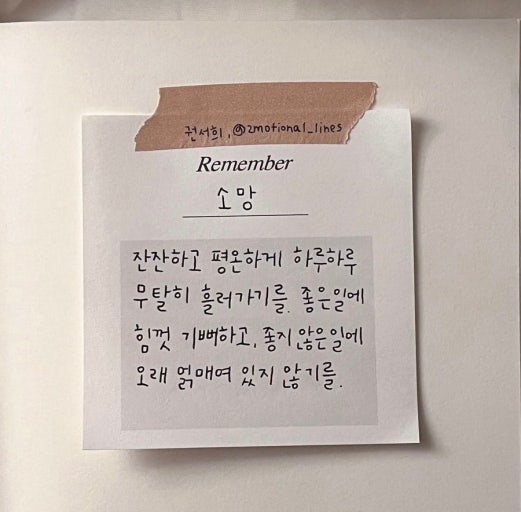 권서희, @emotional_lines
Remember
소망
잔잔하고 평온하게 하루하루
무탈히 흘러가기를. 좋은일에
힘껏 기뻐하고, 좋지 않은일에
오래 얽매여 있지 않기를.